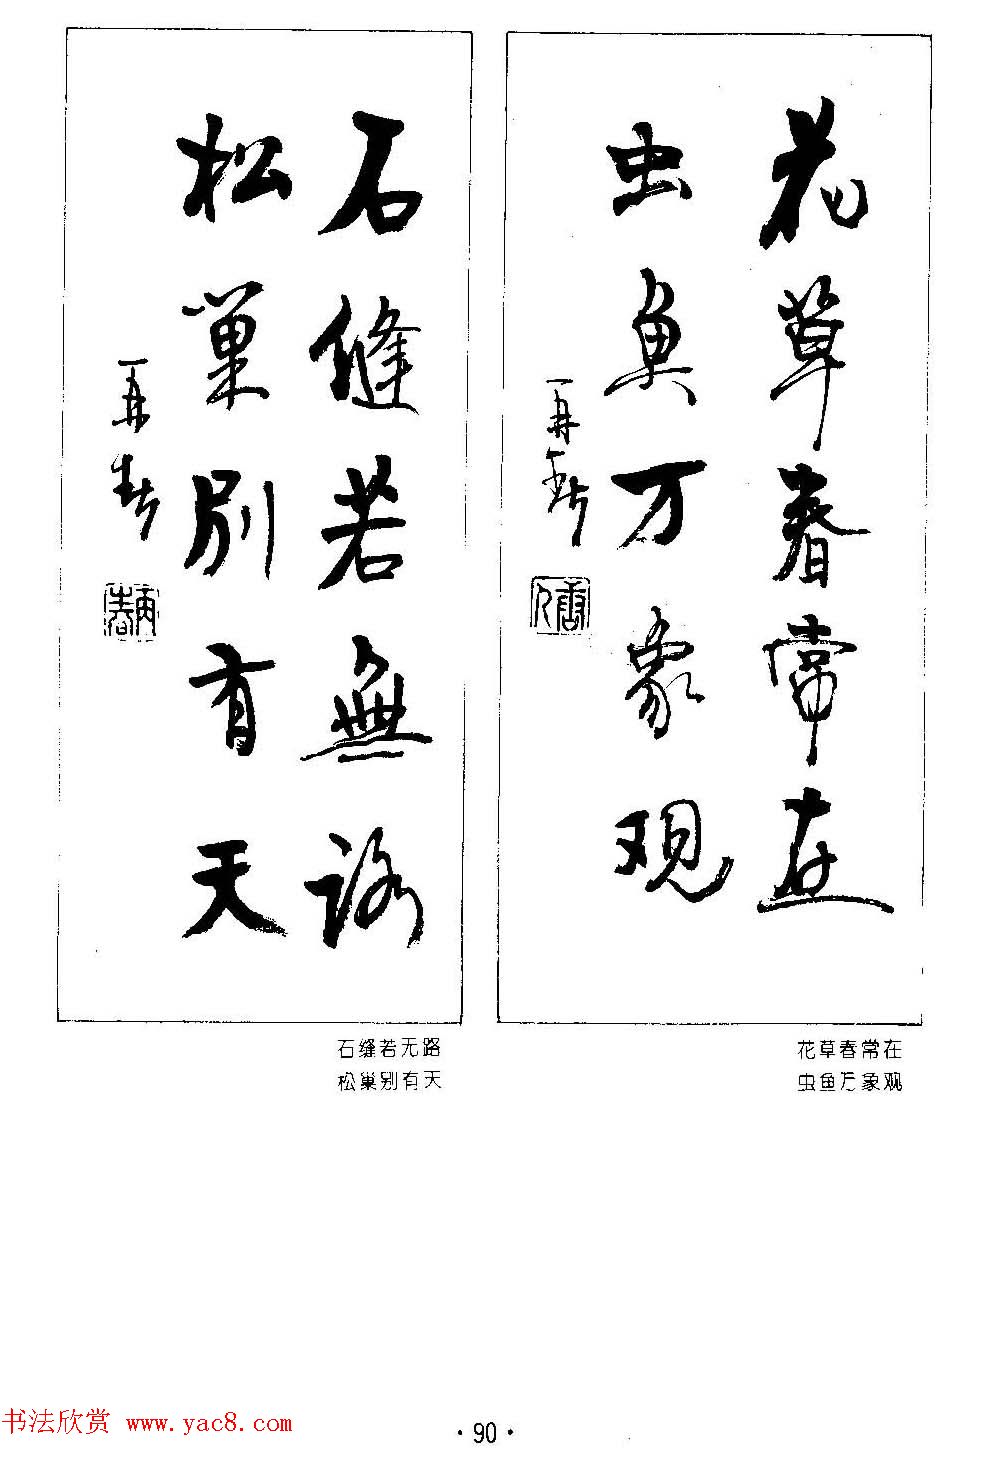 花草春常在
虫鱼万象观
再春
唐人
石缝若無路
松巢别有天
再春
再春
花草春常在
虫鱼万象观
石缝若无路
松巢别有天
书法欣赏 www.yac8.com
·90·